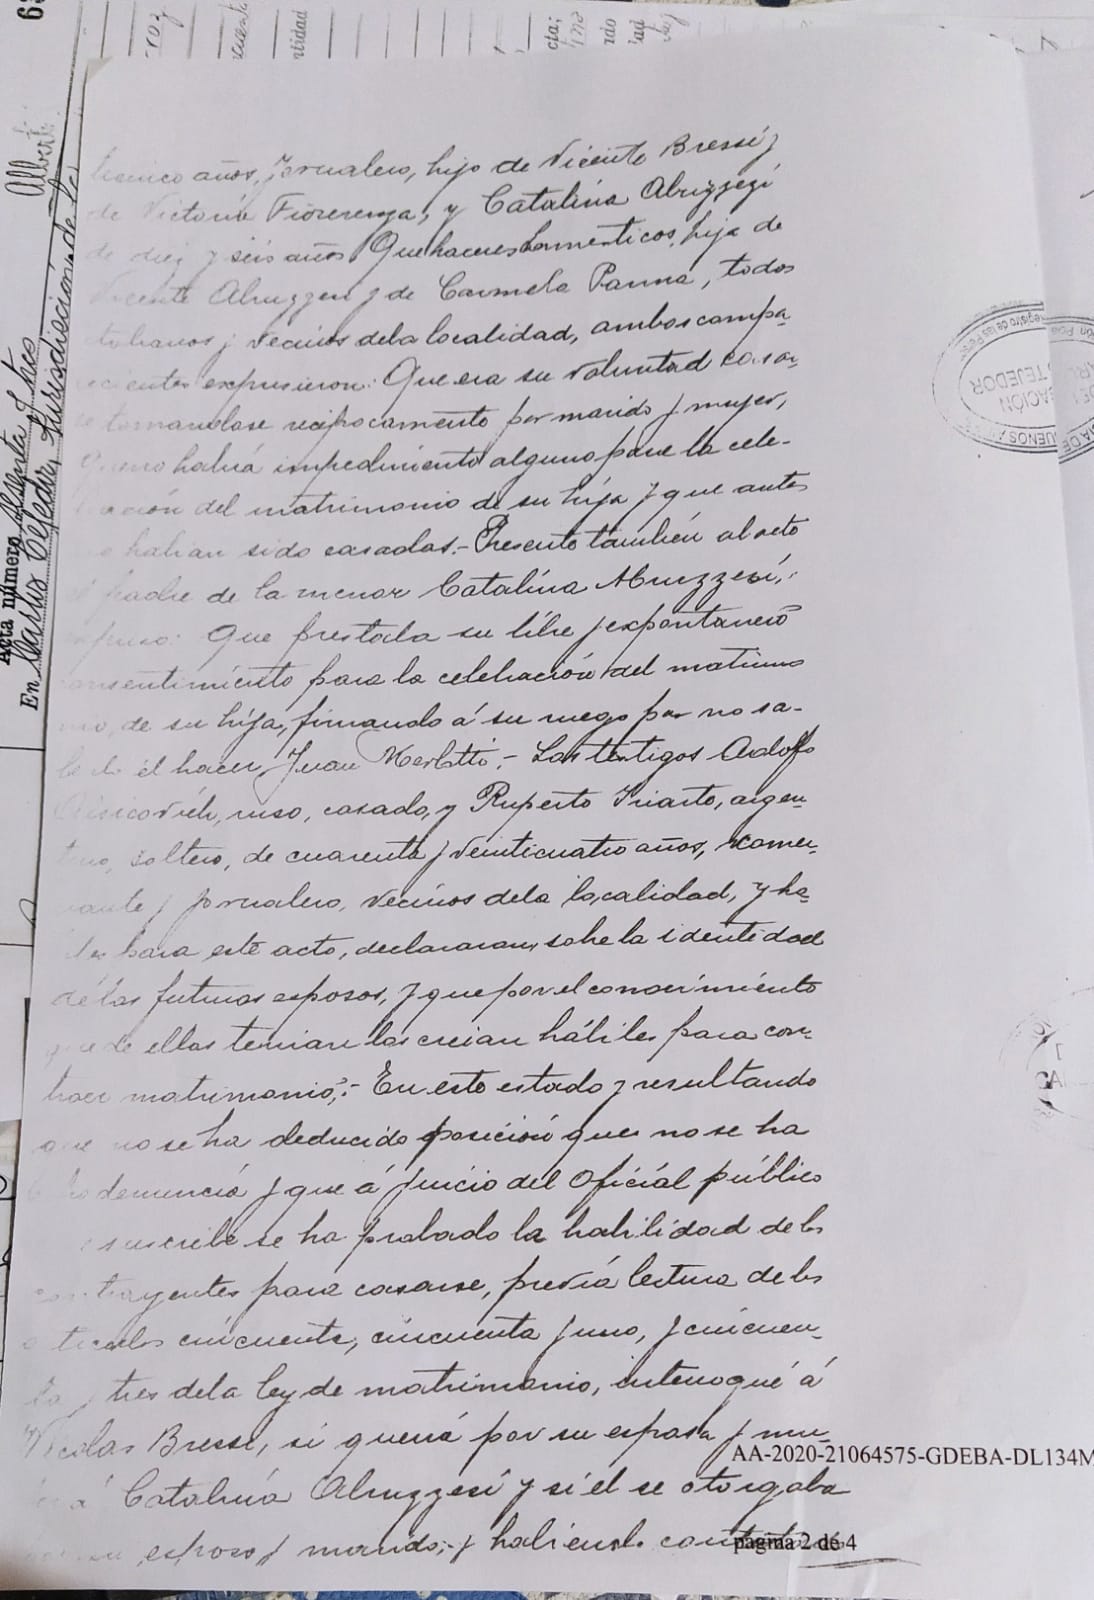 años, jornalero, hijo de Vicente Bressi y
de Victoria Fiorerenza, y Catalina Abruzzezi
de diez y seis años Que haceres domesticos, hija de
Vicente Abruzzezi y de Carmela Panna, todos
y vecinos de la localidad, ambos compa-
recientes expusieron: Que era su voluntad casar-
se tomandose reciprocamente por marido y mujer,
Que no había impedimento alguno para la cele-
bración del matrimonio de su hija y que antes
no habian sido casadas.- Presente también al acto
el padre de la menor Catalina Abruzzesi,
expuso: Que prestaba su libre y expontaneo
consentimiento para la celebración del matrimo
nio, de su hija, firmando á su ruego por no sa-
berlo él hacer, Juan Merlotti.- Los testigos Adolfo
ruso, casado, y Ruperto Iriarte, argen-
tino, soltero, de cuarenta y veinticuatro años, comer-
ciante y jornalero, vecinos de la localidad, y há-
biles para este acto, declararon, sobre la identidad
de los futuros esposos, y que por el conocimiento
que de ellos tenian los creian hábiles para con-
traer matrimonio,- En este estado y resultando
que no se ha deducido oposición que no se ha
hecho denuncia y que á juicio del Oficial público
que suscribe se ha probado la habilidad de los
contrayentes para casarse, previa lectura de los
articulos cincuenta, cincuenta y uno, y cincuen-
ta y tres de la ley de matrimonio, interrogué á
Nicolas Bresse, si queria por su esposa y mu-
jer á Catalina Abruzzesi y si él se otorgaba
como esposo y marido; y habiendo
AA-2020-21064575-GDEBA-DL134M
página 2 de 4
Acta número Sesenta y tres
En Carlos Tejedor, Jurisdicción de la
Alberti
cta;
rdo